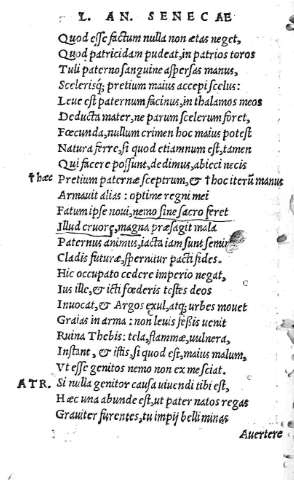 L. AN. SENECAE
Quod esse factum nulla non ætas neget,
Quod patricidam pudeat, in patrios toros
Tuli paterno sanguine aspersas manus,
Scelerisq; pretium maius accepi scelus:
Leue est paternum facinus, in thalamos meos
Deducta mater, ne parum scelerum foret,
Fœcunda, nullum crimen hoc maius potest
Natura ferre, si quod etiamnum est, tamen
Qui facere possunt, dedimus, abieci necis
†hæc Pretium paternæ sceptrum, & †hoc iterū manus
Armauit alias: optime regni mei
Fatum ipse noui, nemo sine sacro feret
Illud cruore, magna præsagit mala
Paternus animus, iacta iam sunt semina
Cladis futuræ, spernitur pacti fides.
Hic occupato cedere imperio negat,
Ius ille, & icti fœderis testes deos
Inuocat, & Argos exul, atq; urbes mouet
Graias in arma: non leuis fessis uenit
Ruina Thebis: tela, flammæ, uulnera,
Instant, & istis, si quod est, maius malum,
Vt esse genitos nemo non ex me sciat.
ATR. Si nulla genitor causa uiuendi tibi est,
Hæc una abunde est, ut pater natos regas
Grauiter furentes, tu impij belli minas
Auertere